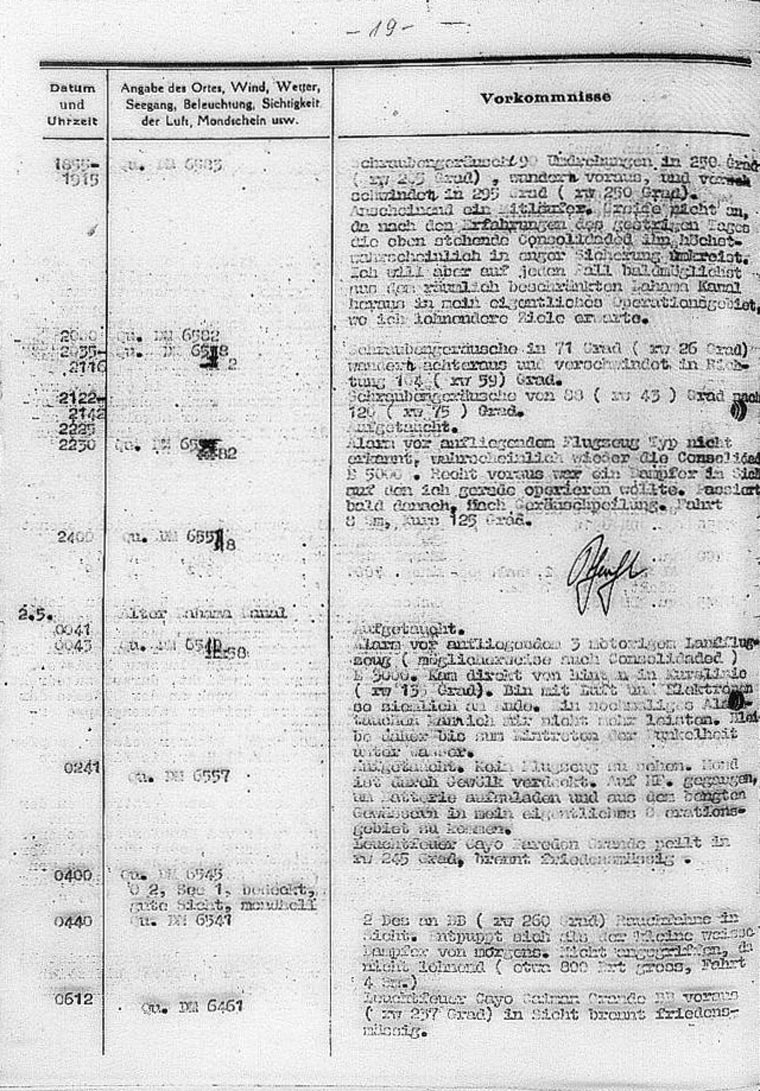 - 19 -
Datum
und
Uhrzeit
Angabe des Ortes, Wind, Wetter,
Seegang, Beleuchtung, Sichtigkeit
der Luft, Mondschein usw.
Vorkommnisse
1855-
1915
qu. DM 6583
Schraubengeräusch 90 Umdrehungen in 250 Grad
( rw 205 Grad) , wandern voraus, und versch
schwinden in 295 Grad ( rw 250 Grad).
Anscheinend ein Mitläufer. Greife nicht an,
da nach den Erfahrungen des gestrigen Tages
die oben stehende Consolidaded ihn höchst-
wahrscheinlich in enger Sicherung umkreist.
Ich will aber auf jeden Fall baldmöglichst
aus dem räumlich beschränkten Bahama Kanal
heraus in mein eigentliches Operationsgebiet,
wo ich lohnendere Ziele erwarte.
2000
qu. DM 6582
2035-
2116
qu. DM
2
Schraubengeräusche in 71 Grad ( rw 26 Grad)
wandern achteraus und verschwindet in Rich-
tung 104 ( rw 59) Grad.
2122-
2142
Schraubengeräusche von 88 ( rw 43 ) Grad nach
120 ( rw 75 ) Grad.
2225
Aufgetaucht.
2230
qu. DM
82
Alarm vor anfliegendem Flugzeug Typ nicht
erkannt, wahrscheinlich wieder die Consolidad
E 5000 . Recht voraus war ein Dampfer in Sich
auf den ich gerade operieren wollte. Passiert
bald darnach, nach Geräuschpeilung. Fahrt
8 sm, Kurs 125 Grad.
2400
qu. DM
18
2.5.
Alter Bahama Kanal
0041
Aufgetaucht.
0043
qu. DM 6540
58
Alarm vor anfliegendem 3 motorigem Landflug-
zeug ( möglicherweise auch Consolidaded )
E 5000. Kam direkt von hinten in Kurslinie
( rw 135 Grad). Bin mit Luft und Elektronen
so ziemlich am Ende. Ein nochmaliges Alarm-
tauchen kann ich mir nicht mehr leisten. Blei
be daher bis zum Eintreten der Dunkelheit
unter Wasser.
0241
qu. DM 6557
Aufgetaucht. Kein Flugzeug zu sehen. Mond
ist durch Gewölk verdeckt. Auf HF. gegangen,
um Batterie aufzuladen und aus dem beengten
Gewässern in mein eigentliches Operations-
gebiet zu kommen.
Leuchtfeuer Cayo Paredon Grande peilt in
rw 245 Grad, brennt friedensmässig .
0400
qu. DM 6545
O 2, See 1, bedeckt,
gute Sicht, mondhell
0440
qu. DM 6541
2 Dez an BB ( rw 260 Grad) Rauchfahne in
Sicht. Entpuppt sich als der kleine weisse
Dampfer von morgens. Nicht angegriffen, da
nicht lohnend ( etwa 800 Brt gross, Fahrt
4 sm.)
0612
qu. DM 6461
Leuchtfeuer Cayo Caiman Grande BB voraus
( rw 237 Grad) in Sicht brennt friedens-
mässig.